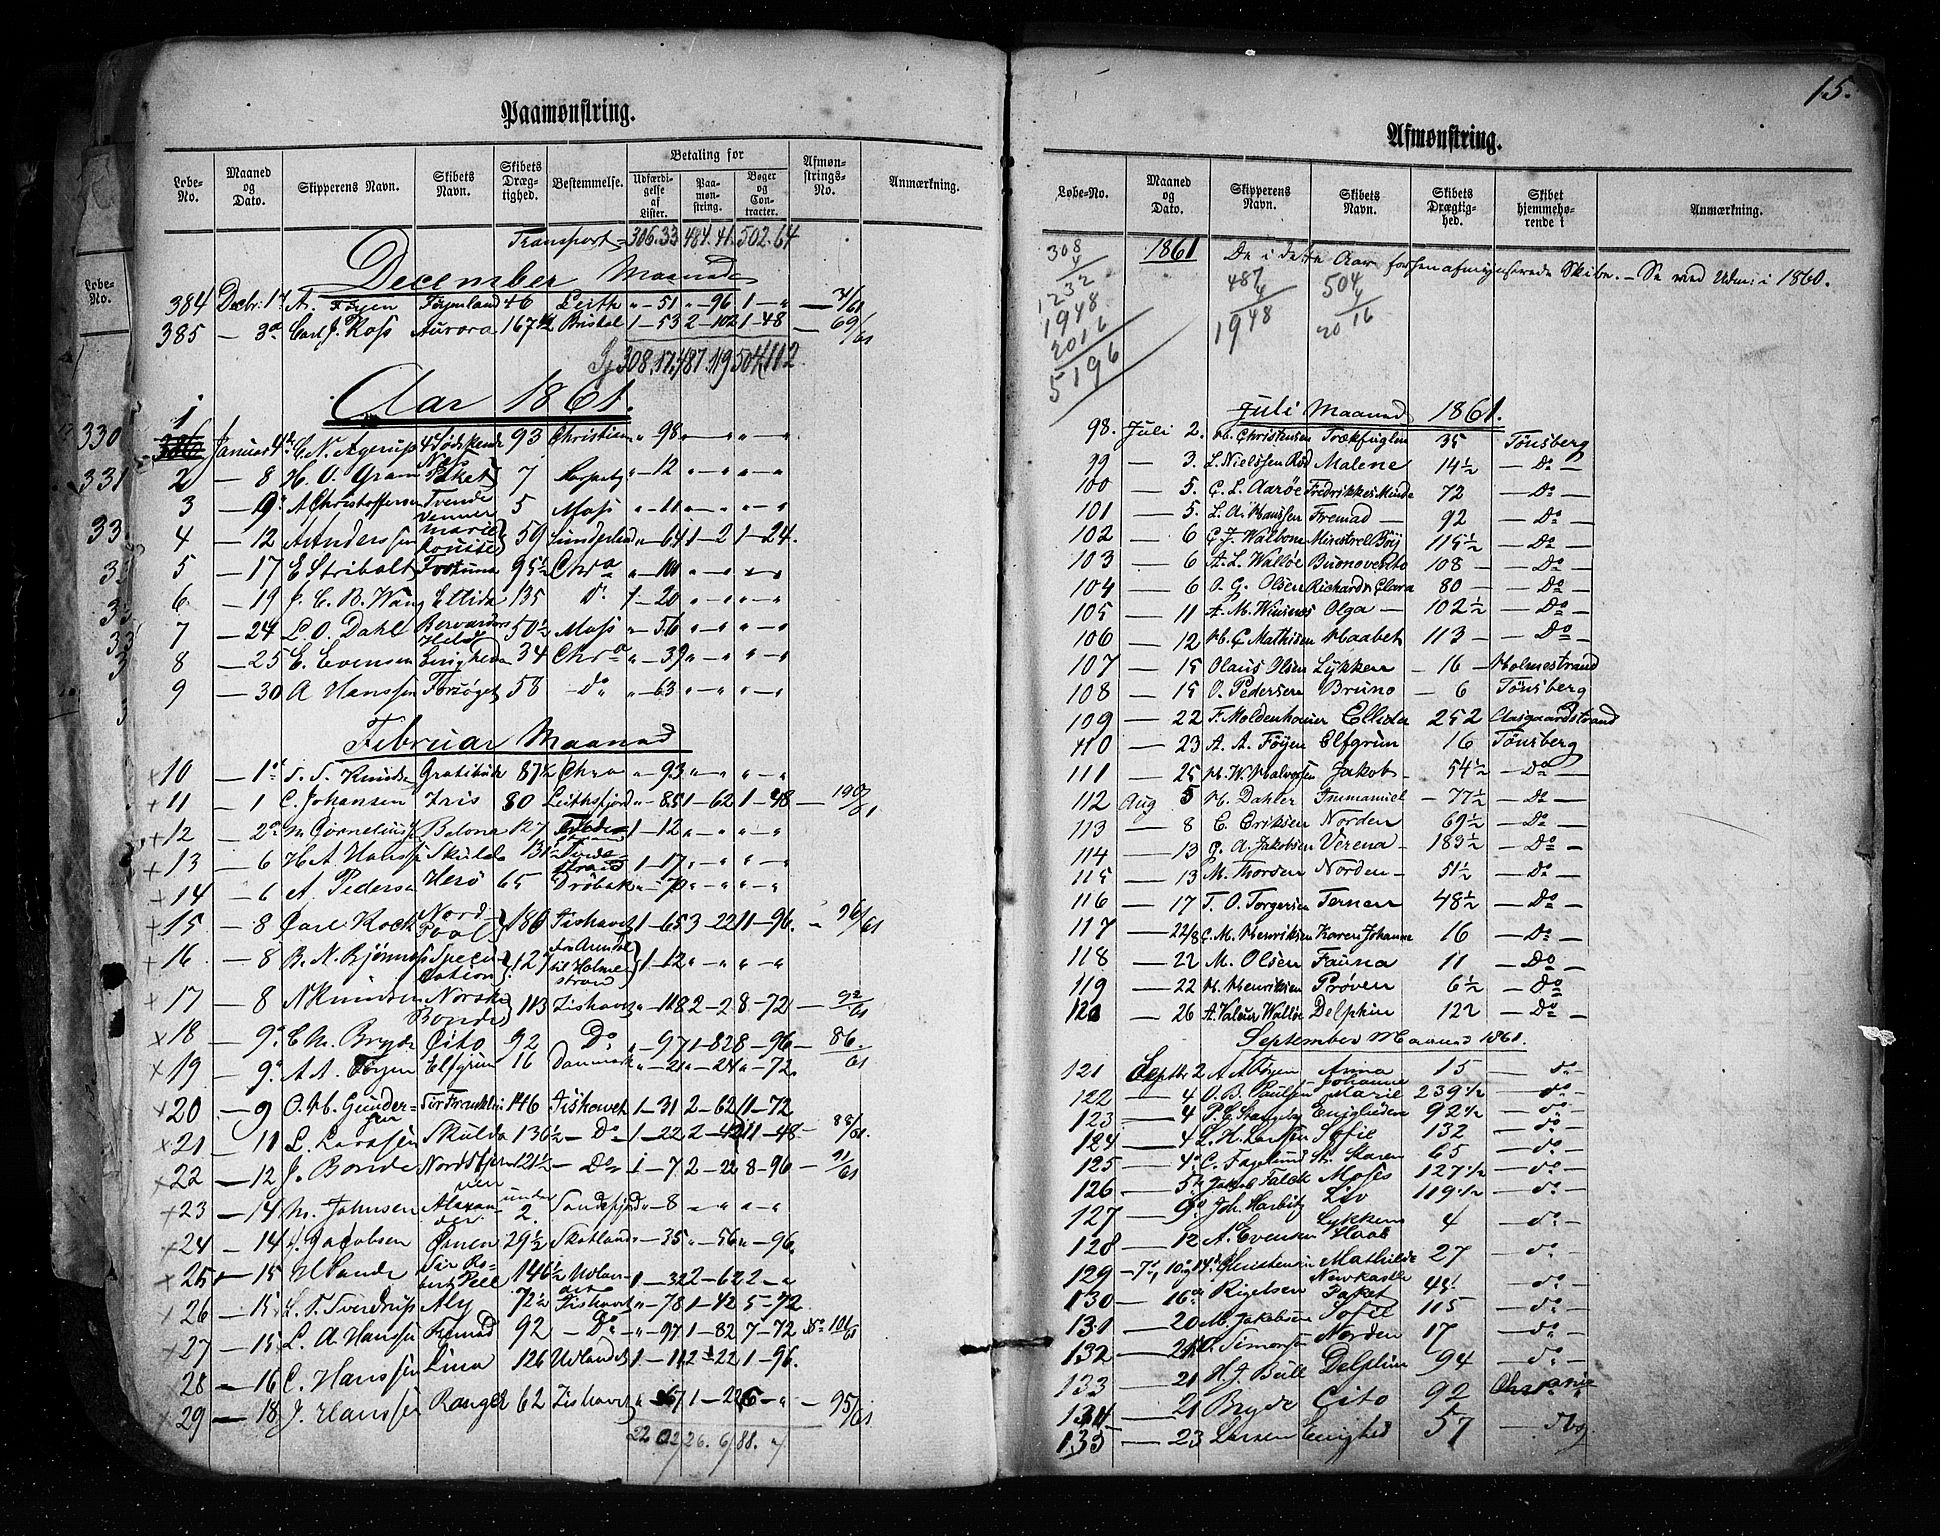 15.
Paamønstring.
Løbe-No. Maaned og Dato. Skipperens Navn. Skibets Navn. Skibets Drægtighed. Bestemmelse. Betaling for Udfærdigelse af Lister. Paamønstring. Bøger og Contracter. Afmønstrings-No. Anmærkning.
Transport = 306.33 484.41 502.64
December Maaned
384 Decbr. 17 A. Føyen Føyenland 46 Leith " - 51 " - 96 1 - " - 31/61
385 - 30 Carl J. Foss Aurora 167 1/2 Bristol 1 - 53 2 - 102 1 - 48 - 69/61
308.17. 487.119 504.112
Aar 1861.
1
386 Januar 4de C. N. Agerup 4 Sødskende 93 Christian " - 98 " - " " - "
2 - 8 H. O. Gram Nefs Paket 7 " - 12 " - " " - "
3 - 9 A Christoffersen Tvende Venner 5 Moss " - 11 " - " " - "
4 - 12 A Anderssen Marie Louise 59 Sunderland " - 64 1 - 2 1 - 24.
5 - 17 E Stribolt Fortuna 95 1/2 Chra " - 100 " - " " - "
6 - 19 J. C. B. Wang Ellida 135 do 1 - 20 " - " " - "
7 - 24 L. O. Dahl 50 1/2 Moss " - 56 " - " " - "
8 - 25 E. Evensen Enigheden 34 Chra " - 39 " - " " - "
9 - 30 A Hanssen Forsøget 58 - do " - 63 " - " " - "
Februar Maaned
10 - 1 Knudsen Gratitude 87 1/2 Chra " - 93 " - " " - "
11 - 1 C. Johansen Iris 80 Leithsfjord " - 85 1 - 62 1 - 48 - 190/61
12 - 2 M Cornelius Belona 127 1 - 12 " - " " - "
13 - 6 H A Hanssen Skulda 131 1/2 1 - 17 " - " " - "
14 - 6 A Pedersen Herö 65 Drøbak " - 70 " - " " - "
15 - 8 Carl Koch Nord Poal 180 Ishavet 1 - 65 3 - 22 11 - 96. - 96/61
16 - 8 B. N. Bjönness Speculation 127 Fra Arendal til Holmestrand 1 - 12 " - " " - "
17 - 8 N Knudsen Norske Bonde 113 Ishavet " - 118 2 - 2 8 - 72 - 92/61
18 - 9 C M. Bryde Cito 92 Do " - 97 1 - 82 8 - 96 - 86./61
19 - 9 A A. Føyen Elfgrün 16 Danmark " - 21 " - 24 " - 72.
20 - 9 O. H. Gundersen Sir Franklin 146 Ishavet 1 - 31 2 - 62 11 - 72
21 - 11 L. Larssen Skulda 136 1/2 - Do 1 - 22 2 - 42 11 - 48 - 88/61.
22 - 12 J. Bonde Nordstjernen 121 1/2 - Do 1 - 7 2 - 22 8 - 96 - 91/61
23 - 14 M. Johnsen Alexander under 2. Sandefjord " - 8 " - " " - "
24 - 14 J. Jacobsen Ørnen 29 1/2 Skotland " - 35 " - 56 " - 96.
25 - 15 Sir Robert Peel 146 1/2 Udlandet 1 - 32 2 - 62 2 - "
26 - 15 L. T. Sverdrup Aly 72 1/2 Ishavet " - 78 1 - 42 5 - 72
27 - 15 L. A Hanssen Fremad 92 - Do " - 97 1 - 82 7 - 72 No 101/61
28 - 16 C. Hanssen Lina 126 Udlandet 1 - 11 2 - 22 1 - 96.
29 - 18 J. Hanssen Ranger 62 Ishavet " - 67 1 - 22 6 - " - 95/61
Afmønstring.
Løbe-No. Maaned og Dato. Skipperens Navn. Skibets Navn. Skibets Drægtighed. Skibet hjemmehørende i Anmærkning.
308
4
1232
1948
2016
5196
1861 De i dette Aar forhen afmynstrede Skibe. - Se ved Udm: i 1860.
487
4
1948
504
4
2016
Juli Maaned 1861.
98. Juli 2. H. Christensen Trækfuglen 35 Tönsberg
99 - 3. L. Nielssen Röd Malene 14 1/2 - Do -
100 - 5. C. L. Aarøe Fredrikkes Minde 72 - Do -
101 - 5. L. A. Hanssen Fremad - 92 - Do -
102 - 6 C. J. Walbone Minstrel Boy 115 1/2 - Do -
103 - 6 A. L. Walløe Buonovesito 108 - - Do -
104 - 6 O. G. Olsen Richard & Clara 80 - - Do -
105 - 11 A. M. Winsnes Olga - 102 1/2 - Do -
106 - 12 H. C. Mathisen Haabet 113 - - Do -
107 - 15 Olaus Olsen Lykken - 16 - Holmestrand
108 - 15 O. Pedersen Bruno - 6 Tönsberg
109 - 22 F. Moldenhauer Ellida 252 Aasgaardstrand
110 - 23 A. A. Føyen Elfgrün 16 Tönsberg
111 - 25 H. W. Halvorsen Jakob - 54 1/2 - Do -
112 Aug 5 H. Dahler Immanuel - 77 1/2 - Do -
113 - 8 C. Eriksen Norden 69 1/2 - Do -
114 - 13 C. A. Jakobsen Verena - 183 1/2 - Do -
115 - 13 M. Thorsen Norden - 51 1/2 - Do -
116 - 17 T. O. Torgersen Ternen 48 1/2 - Do -
117 - 22/8 C. M. Henriksen Karen Johanne 16 - Do -
118 - 22 M. Olsen Fauna 11 - Do -
119 - 22 H. Henriksen Prøven 6 1/2 - Do -
120 - 26 A. Valeur Walløe Delphin 122 - Do -
September Maaned 1861.
121 Septbr 2 A A Føyen Anna 15 - do -
122 - 4 O. B. Paulsen Johanne Marie 239 1/2 - do -
123 - 4 P. C. Stangeby Enigheden 92 1/2 - do -
124 - 4 L. H. Larssen Sofie 132 - do -
125 - 4 C. Fagelund St. Karen 65 - do -
126 - 5 Jakob Falck Moses 127 1/2 - do -
127 - 9 Joh. Harbitz Liv 119 1/2 - do -
128 - 12 A. Evensen Lykkens Haab 4 - do -
129 - 7de, 10 og 14de Christensen Mathilde 27 - do -
130 - 16 Rigelsen Newkastle Paket 45 1/2 - do -
131 - 20 M. Jakobsen Sofie 115 - do -
132 - 21 Simonsen Norden 17 - do -
133 - 21 H. J. Bull Delphin 94 - do -
134 - 21 Bryde Cito 92 Christiania
135 - 23 Larsen Enighed 57